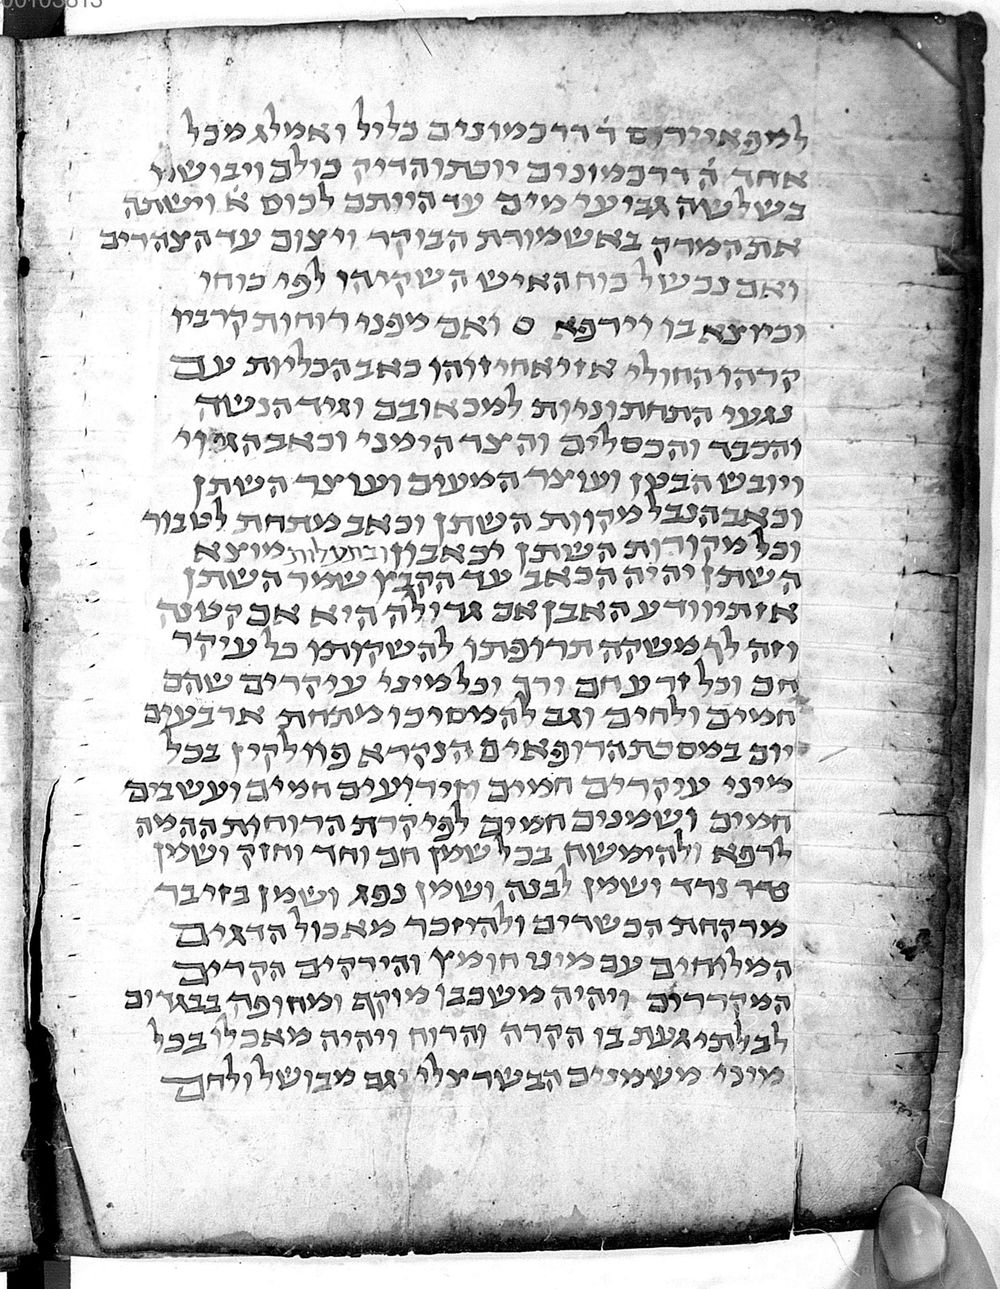 00105813
ד׳ דרכמונים כליל ואמלג מכל
אחד ה׳ דרכמונים יוכתו הדיק כולם ויבושלו
בשלשה גביעי מים עד היותם לכוס א׳ וישתה
את המרק באשמורת הבוקר ויצום עד הצהרים
ואם נכשל כוח האיש השקיהו לפי כוחו
וכיוצא בו וירפא ס ואם מפני רוחות קרביו
קרהו החולי אזי אחיזוהו כאב הכליות עם
נגעי התחתוניות למכאובם וגיד הנשה
והכבד והכסלים והצד הימני וכאב הגוי
ויובש הבטן ועוצר המעים ועוצר השתן
וכאב הנבל מקוות השתן וכאב מתחת לטבור
וכל מקורות השתן יכאבון ובתעלות מוצא
השתן יהיה הכאב עד הקבץ שמר השתן
אז תיוודע האבן אם גדולה היא אם קטנה
וזה לך משקה תרופתו להשקותו כל עיקר
חם וכל זרע חם ורך וכל מיני עיקרים שהם
חמים ולחים וגם להמסיכו מתחת ארבעים
יום במסכת הרופאים הנקרא פוולקין בכל
מיני עיקרים חמים וזירועים חמים ועשבים
חמים ושמנים חמים לפי קרת הרוחות ההמה
לרפא ולהימשח בכל שמן חם וחד וחזק ושמן
נרד ושמן לבנה ושמן נפג ושמן בזיבר
מרקחת הכשרים ולהיזהר מאכול הדגים
המלוחים עם מיני חומץ והירקים הקרים
המקררים ויהיה משכבו מוקף ומחופה בבגדים
לבלתי געת בו הקרה והרוח ויהיה מאכלו בכל
מיני משמנים הבשר צלוי וגם מבושל ולחם